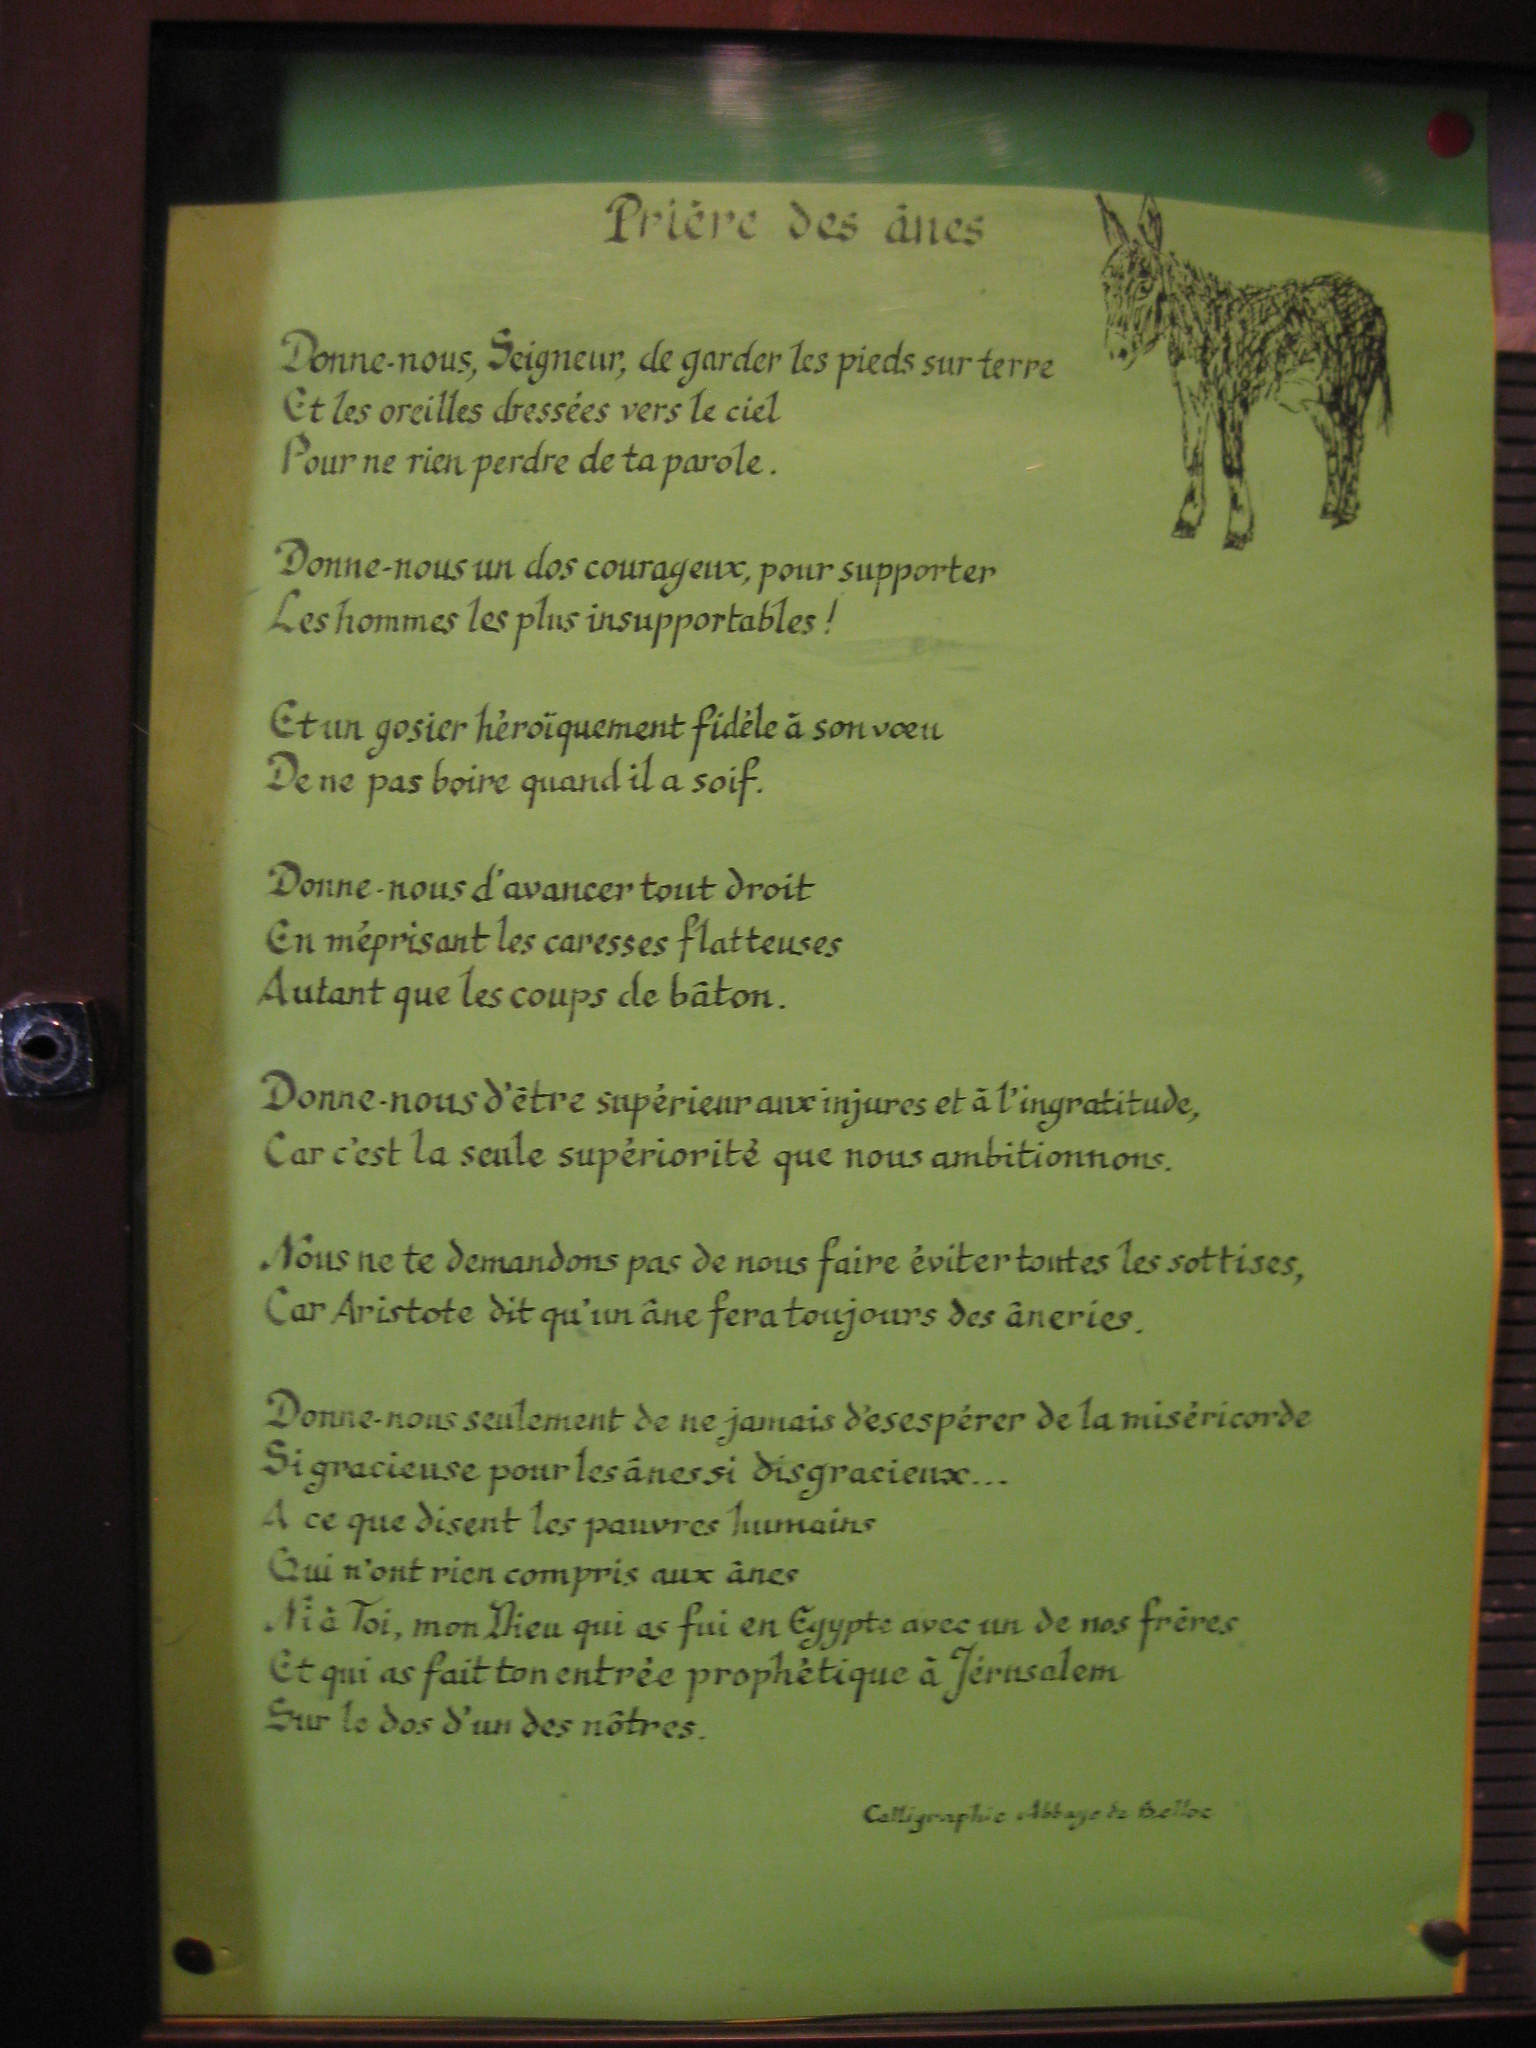 Prière des ânes
Donne-nous, Seigneur, de garder les pieds sur terre
Et les oreilles dressées vers le ciel
Pour ne rien perdre de ta parole.
Donne-nous un dos courageux, pour supporter
Les hommes les plus insupportables !
Et un gosier héroïquement fidèle à son vœu
De ne pas boire quand il a soif.
Donne-nous d'avancer tout droit
En méprisant les caresses flatteuses
Autant que les coups de bâton.
Donne-nous d'être supérieur aux injures et à l'ingratitude,
Car c'est la seule supériorité que nous ambitionnons.
Nous ne te demandons pas de nous faire éviter toutes les sottises,
Car Aristote dit qu'un âne fera toujours des âneries.
Donne-nous seulement de ne jamais désespérer de la miséricorde
Si gracieuse pour les ânes si disgracieux...
A ce que disent les pauvres humains
Qui n'ont rien compris aux ânes
Ni à Toi, mon Dieu qui as fui en Egypte avec un de nos frères
Et qui as fait ton entrée prophétique à Jérusalem
Sur le dos d'un des nôtres.
Calligraphie Abbaye de Belloc